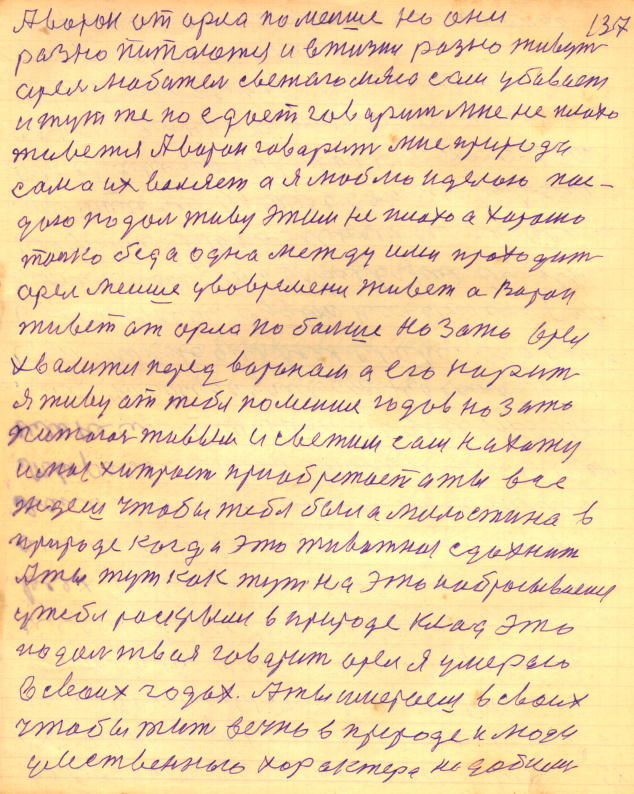 А ворон от орла помение но они 137
разно питаются и в жизни разно живут
орел любател светаго мяса сам убивает
и тут же поедает говарит мне не плохо
живетя А ворон говарит мне природа
сама их валяет а я люблю и делаю пае-
даю подал живу этим не плохо а хорошо
толко беда одна между ими проходит
орел мение уво времени живет а ворон
живет от орла по болше но зато орел
хвалитя перед воронам а его корит
я живу от тебя помение годов но зато
питаюя живым и светим сам нахажу
и моя хитрост приобретает а ты все
ждеш чтобы тебя была милостина в
природе когда это животная сдохнит
А ты тут как тут на это набрасываеш
у тебя раскрыли в природе клад это
подал твая говарит орел я умераю
в своих годах. А ты имераеш в своих
чтобы жит вечно в природе и люди
умственнаго характера надобили